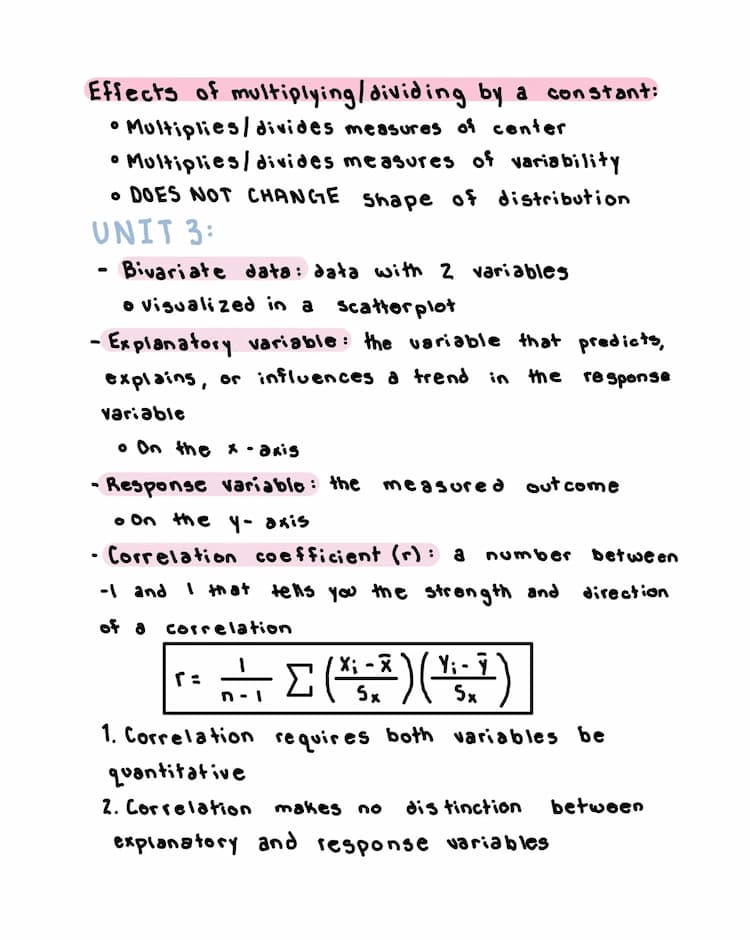 Effects of multiplying/dividing by a constant:
• Multiplies/divides measures of center
• Multiplies/divides measures of variability
• DOES NOT CHANGE shape of distribution
UNIT 3:
- Bivariate data: data with 2 variables
• visualized in a scatterplot
- Explanatory variable: the variable that predicts,
explains, or influences a trend in the response
variable
• On the x-axis
- Response variable: the measured outcome
• On the y-axis
- Correlation coefficient (r): a number between
-1 and 1 that tells you the strength and direction
of a correlation
r = 1/(n-1) Σ ((xᵢ - x̄)/Sₓ)((yᵢ - ȳ)/Sₓ)
1. Correlation requires both variables be
quantitative
2. Correlation makes no distinction between
explanatory and response variables